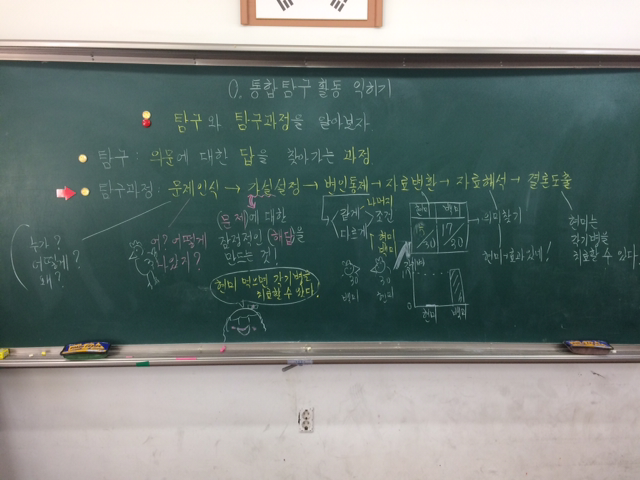 0. 통합탐구 활동 익히기
탐구와 탐구과정을 알아보자
탐구 : 의문에 대한 답을 찾아가는 과정
탐구과정 : 문제인식 → 가설설정 → 변인통제 → 자료변환 → 자료해석 → 결론도출
누가?
어떻게?
왜?
어? 어떻게
나았지?
(문제)에 대한
잠정적인 (해답)을
만드는 것!
현미 먹으면 각기병을
치료할 수 있다.
같게
다르게
나머지
조건
현미
백미
30
30
백미
현미
현미
백미
30
30
0
현미
백미
의미찾기
현미→효과 있네!
현미는
각기병을
치료할 수 있다